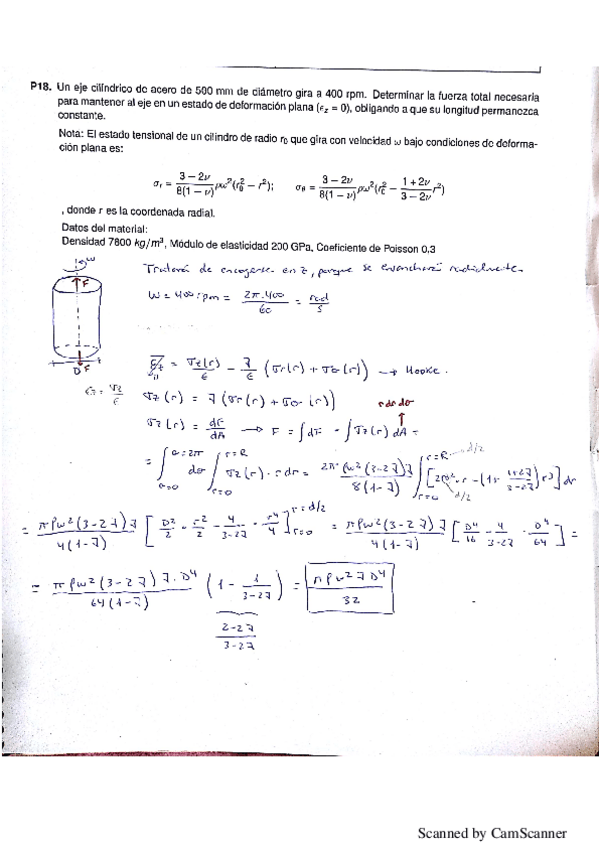 P18. Un eje cilíndrico de acero de 500 mm de diámetro gira a 400 rpm. Determinar la fuerza total necesaria
para mantener al eje en un estado de deformación plana (ε_z = 0), obligando a que su longitud permanezca
constante.
Nota: El estado tensional de un cilindro de radio r₀ que gira con velocidad ω bajo condiciones de deforma-
ción plana es:
σ_r = (3 − 2ν)/(8(1 − ν)) ρω²(r₀² − r²); σ_θ = (3 − 2ν)/(8(1 − ν)) ρω²(r₀² − (1 + 2ν)/(3 − 2ν) r²)
, donde r es la coordenada radial.
Datos del material:
Densidad 7800 kg/m³, Módulo de elasticidad 200 GPa, Coeficiente de Poisson 0,3
ω
F
Tratará de encogerse en z, porque se ensanchará radialmente
W = 400 rpm = 2π·400/60 = rad/s
D F
ε_z = σ_z(r)/E − ν/E (σ_r(r) + σ_θ(r)) → Hooke.
ε_z = σ_z/E
σ_z(r) = ν(σ_r(r) + σ_θ(r))
r dr dθ
σ_z(r) = dF/dA → F = ∫dF = ∫σ_z(r) dA =
= ∫_{θ=0}^{θ=2π} dθ ∫_{r=0}^{r=R} σ_z(r)·r dr = 2π ρω²(3−2ν)ν/(8(1−ν)) ∫_{r=0}^{r=R} [2R²·r − (1+ (1+2ν)/(3−2ν)) r³] dr
d/2
d/2
= πρω²(3−2ν)ν/(4(1−ν)) [D²/2 · r²/2 − 4/(3−2ν) · r⁴/4]_{r=0}^{r=d/2} = πρω²(3−2ν)ν/(4(1−ν)) [D⁴/16 − 4/(3−2ν) · D⁴/64] =
= πρω²(3−2ν)ν·D⁴/(64(1−ν)) (1 − 1/(3−2ν)) = πρω²νD⁴/32
(2−2ν)/(3−2ν)
Scanned by CamScanner